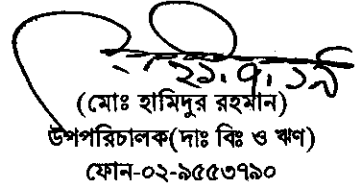 ২১.৭.১৯
(মোঃ হামিদুর রহমান)
উপপরিচালক(দাঃ বিঃ ও ঋণ)
ফোন-০২-৯৫৫৩৭৯০